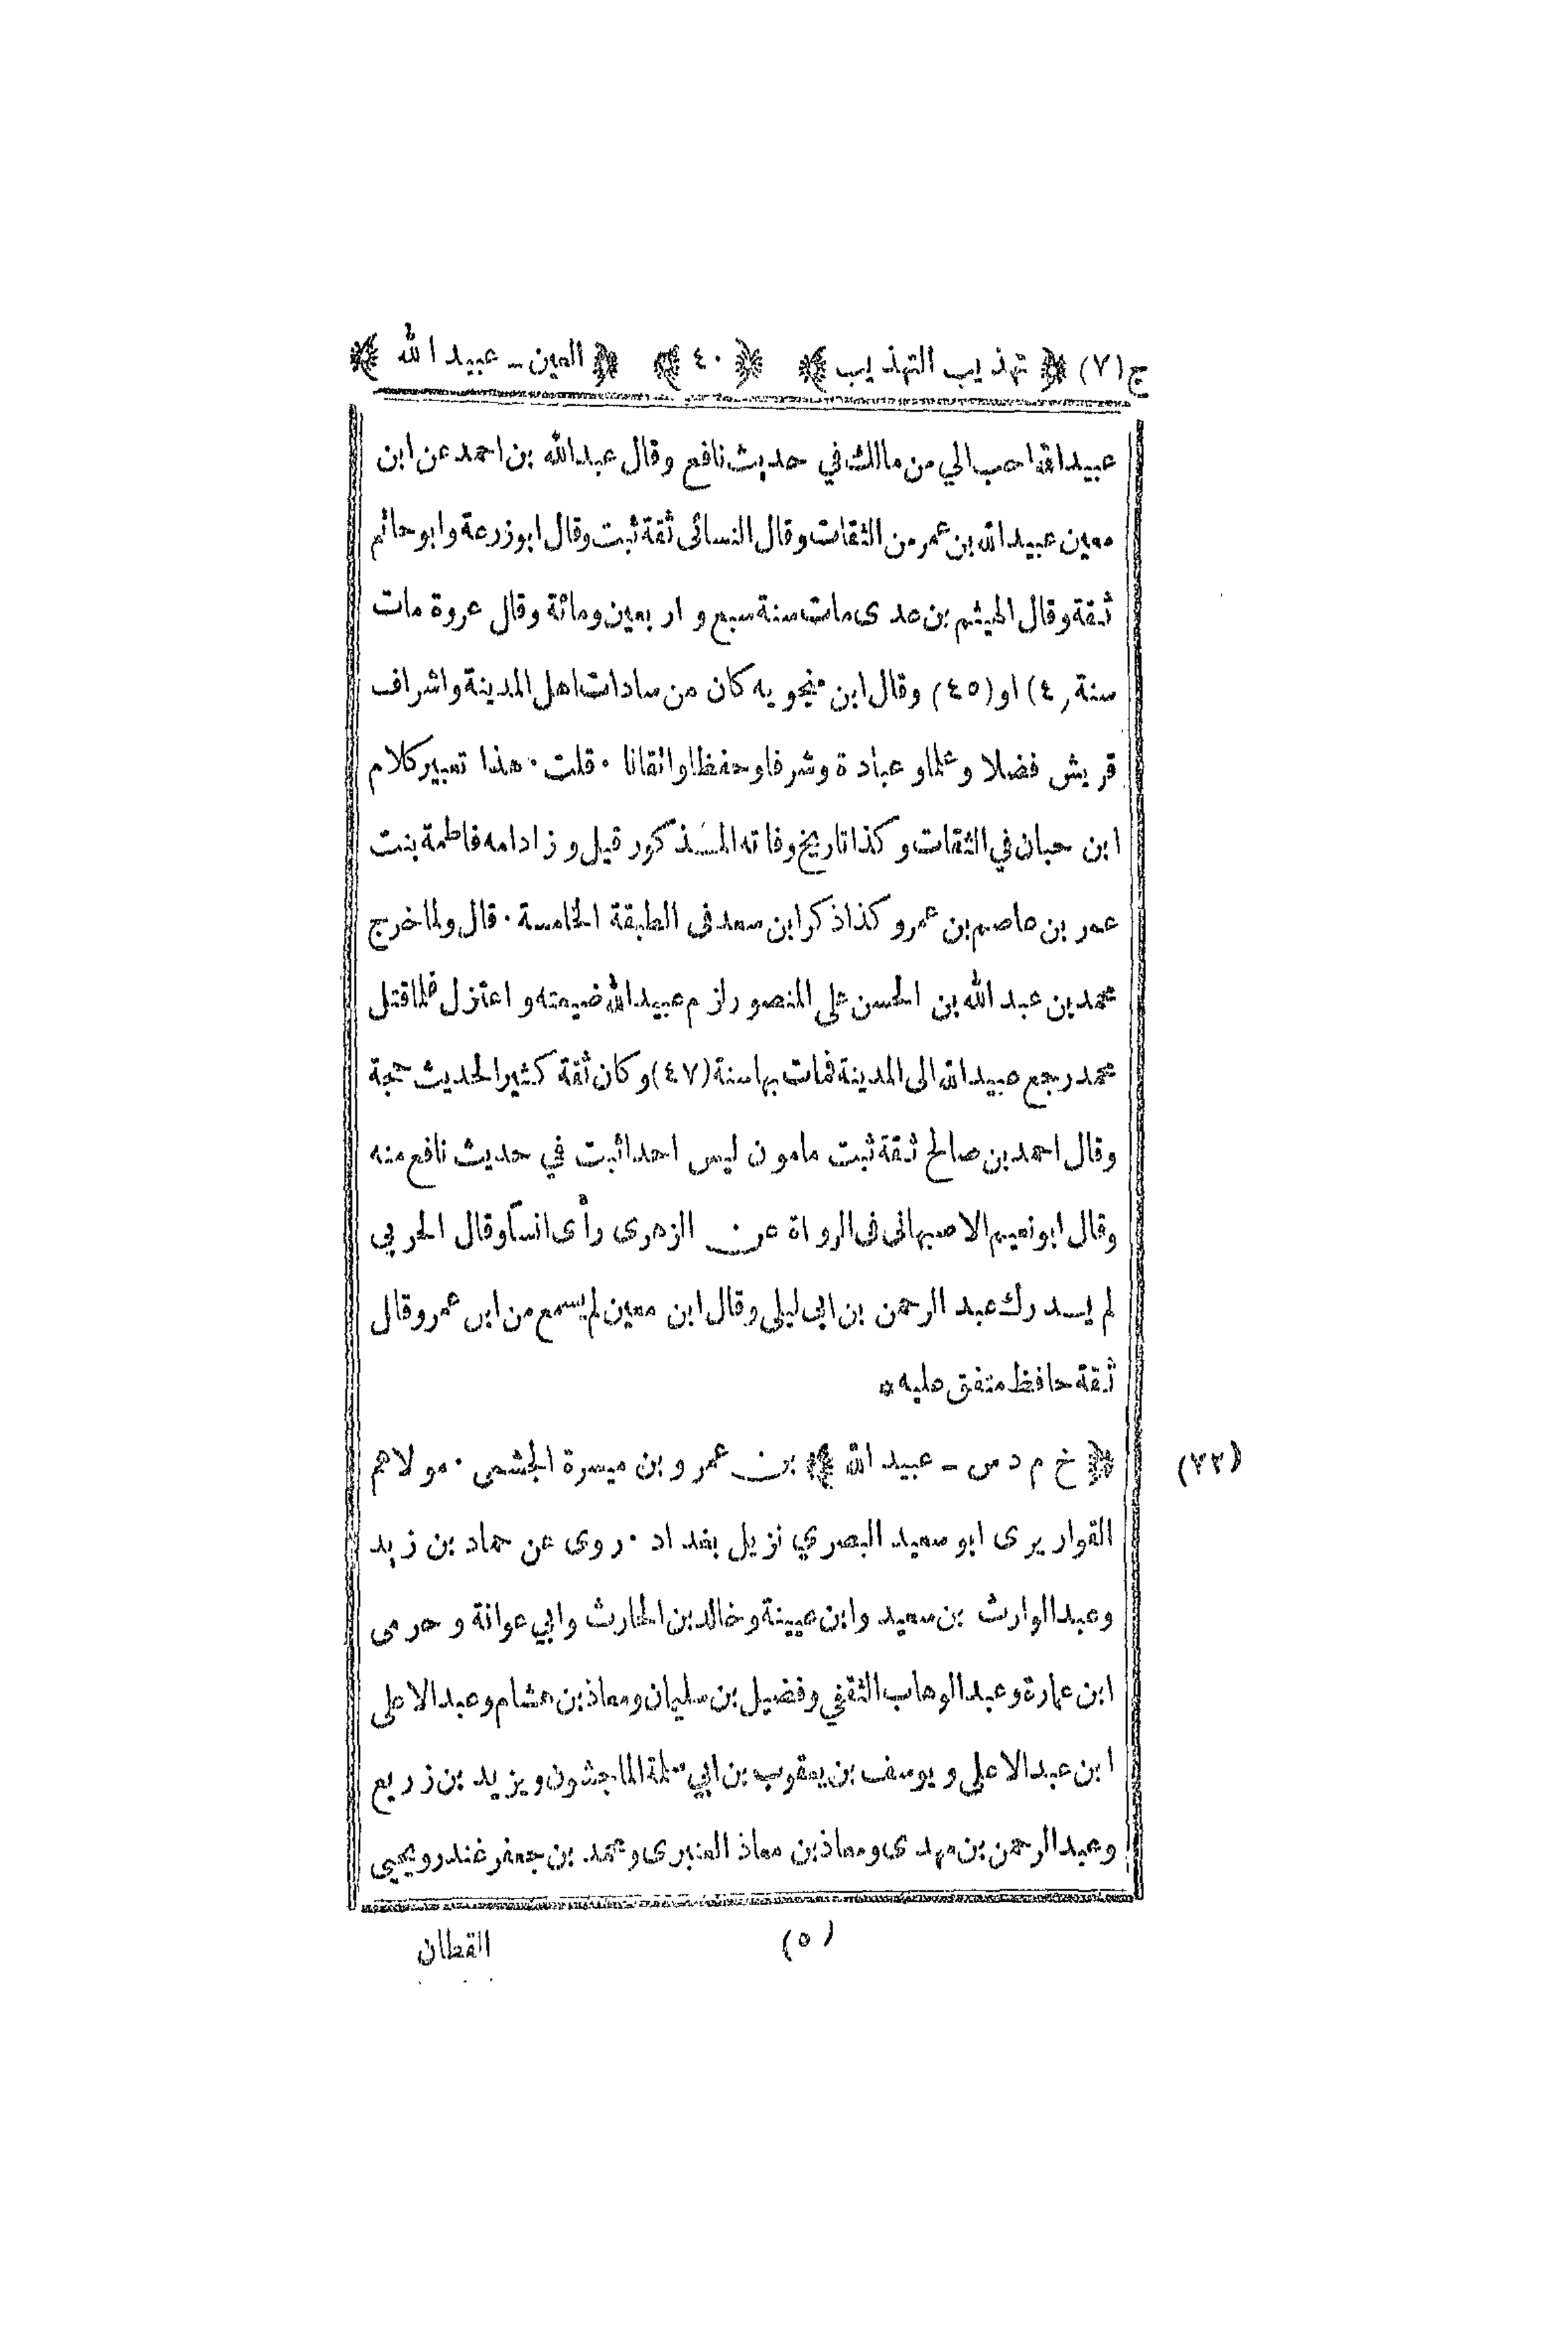 ج(٧) ﴿ تهذيب التهذيب ﴾ ﴿ ٤٠ ﴾ ﴿ العين ـ عبيد الله ﴾
عبيدالله احب الي من مالك في حديث نافع وقال عبدالله بن احمد عن ابن
معين عبيدالله بن عمر من الثقات وقال النسائى ثقة ثبت وقال ابو زرعة وابو حاتم
ثقة وقال الهيثم بن عدى مات سنة سبع و اربعين ومائة وقال عروة مات
سنة ٤) او (٤٥) وقال ابن منجويه كان من سادات اهل المدينة واشراف
قريش فضلا وعلما وعبادة وشرفا وحفظا واتقانا · قلت · هذا تعبير كلام
ابن حبان في الثقات وكذا تاريخ وفاته المذكور قيل وزاد امه فاطمة بنت
عمر بن عاصم بن عمر وكذا ذكر ابن سعد فى الطبقة الخامسة · قال ولما خرج
محمد بن عبد الله بن الحسن على المنصور لزم عبيدالله ضيعته و اعتزل فلما قتل
محمد رجع عبيدالله الى المدينة فمات بها سنة (٤٧) وكان ثقة كثير الحديث حجة
وقال احمد بن صالح ثقة ثبت مامون ليس احد اثبت في حديث نافع منه
وقال ابو نعيم الاصبهانى فى الرواة عن الزهرى رأى انسا وقال الحربي
لم يدرك عبد الرحمن بن ابى ليلى وقال ابن معين لم يسمع من ابن عمر وقال
ثقة حافظ متفق عليه *
﴿ خ م د س ـ عبيد الله ﴾ بن عمر و بن ميسرة الجشمى · مولاهم
(٣٣)
القواريرى ابو سعيد البصري نزيل بغداد · روى عن حماد بن زيد
وعبدالوارث بن سعيد وابن عيينة وخالد بن الحارث وابي عوانة و حرمى
ابن عمارة وعبدالوهاب الثقفي وفضيل بن سليمان ومعاذ بن هشام وعبدالاعلى
ابن عبدالاعلى ويوسف بن يعقوب بن ابي سلمة الماجشون ويزيد بن زريع
وعبدالرحمن بن مهدى ومعاذ بن معاذ العنبرى ومحمد بن جعفر غندر ويحيى
(٥)
القطان